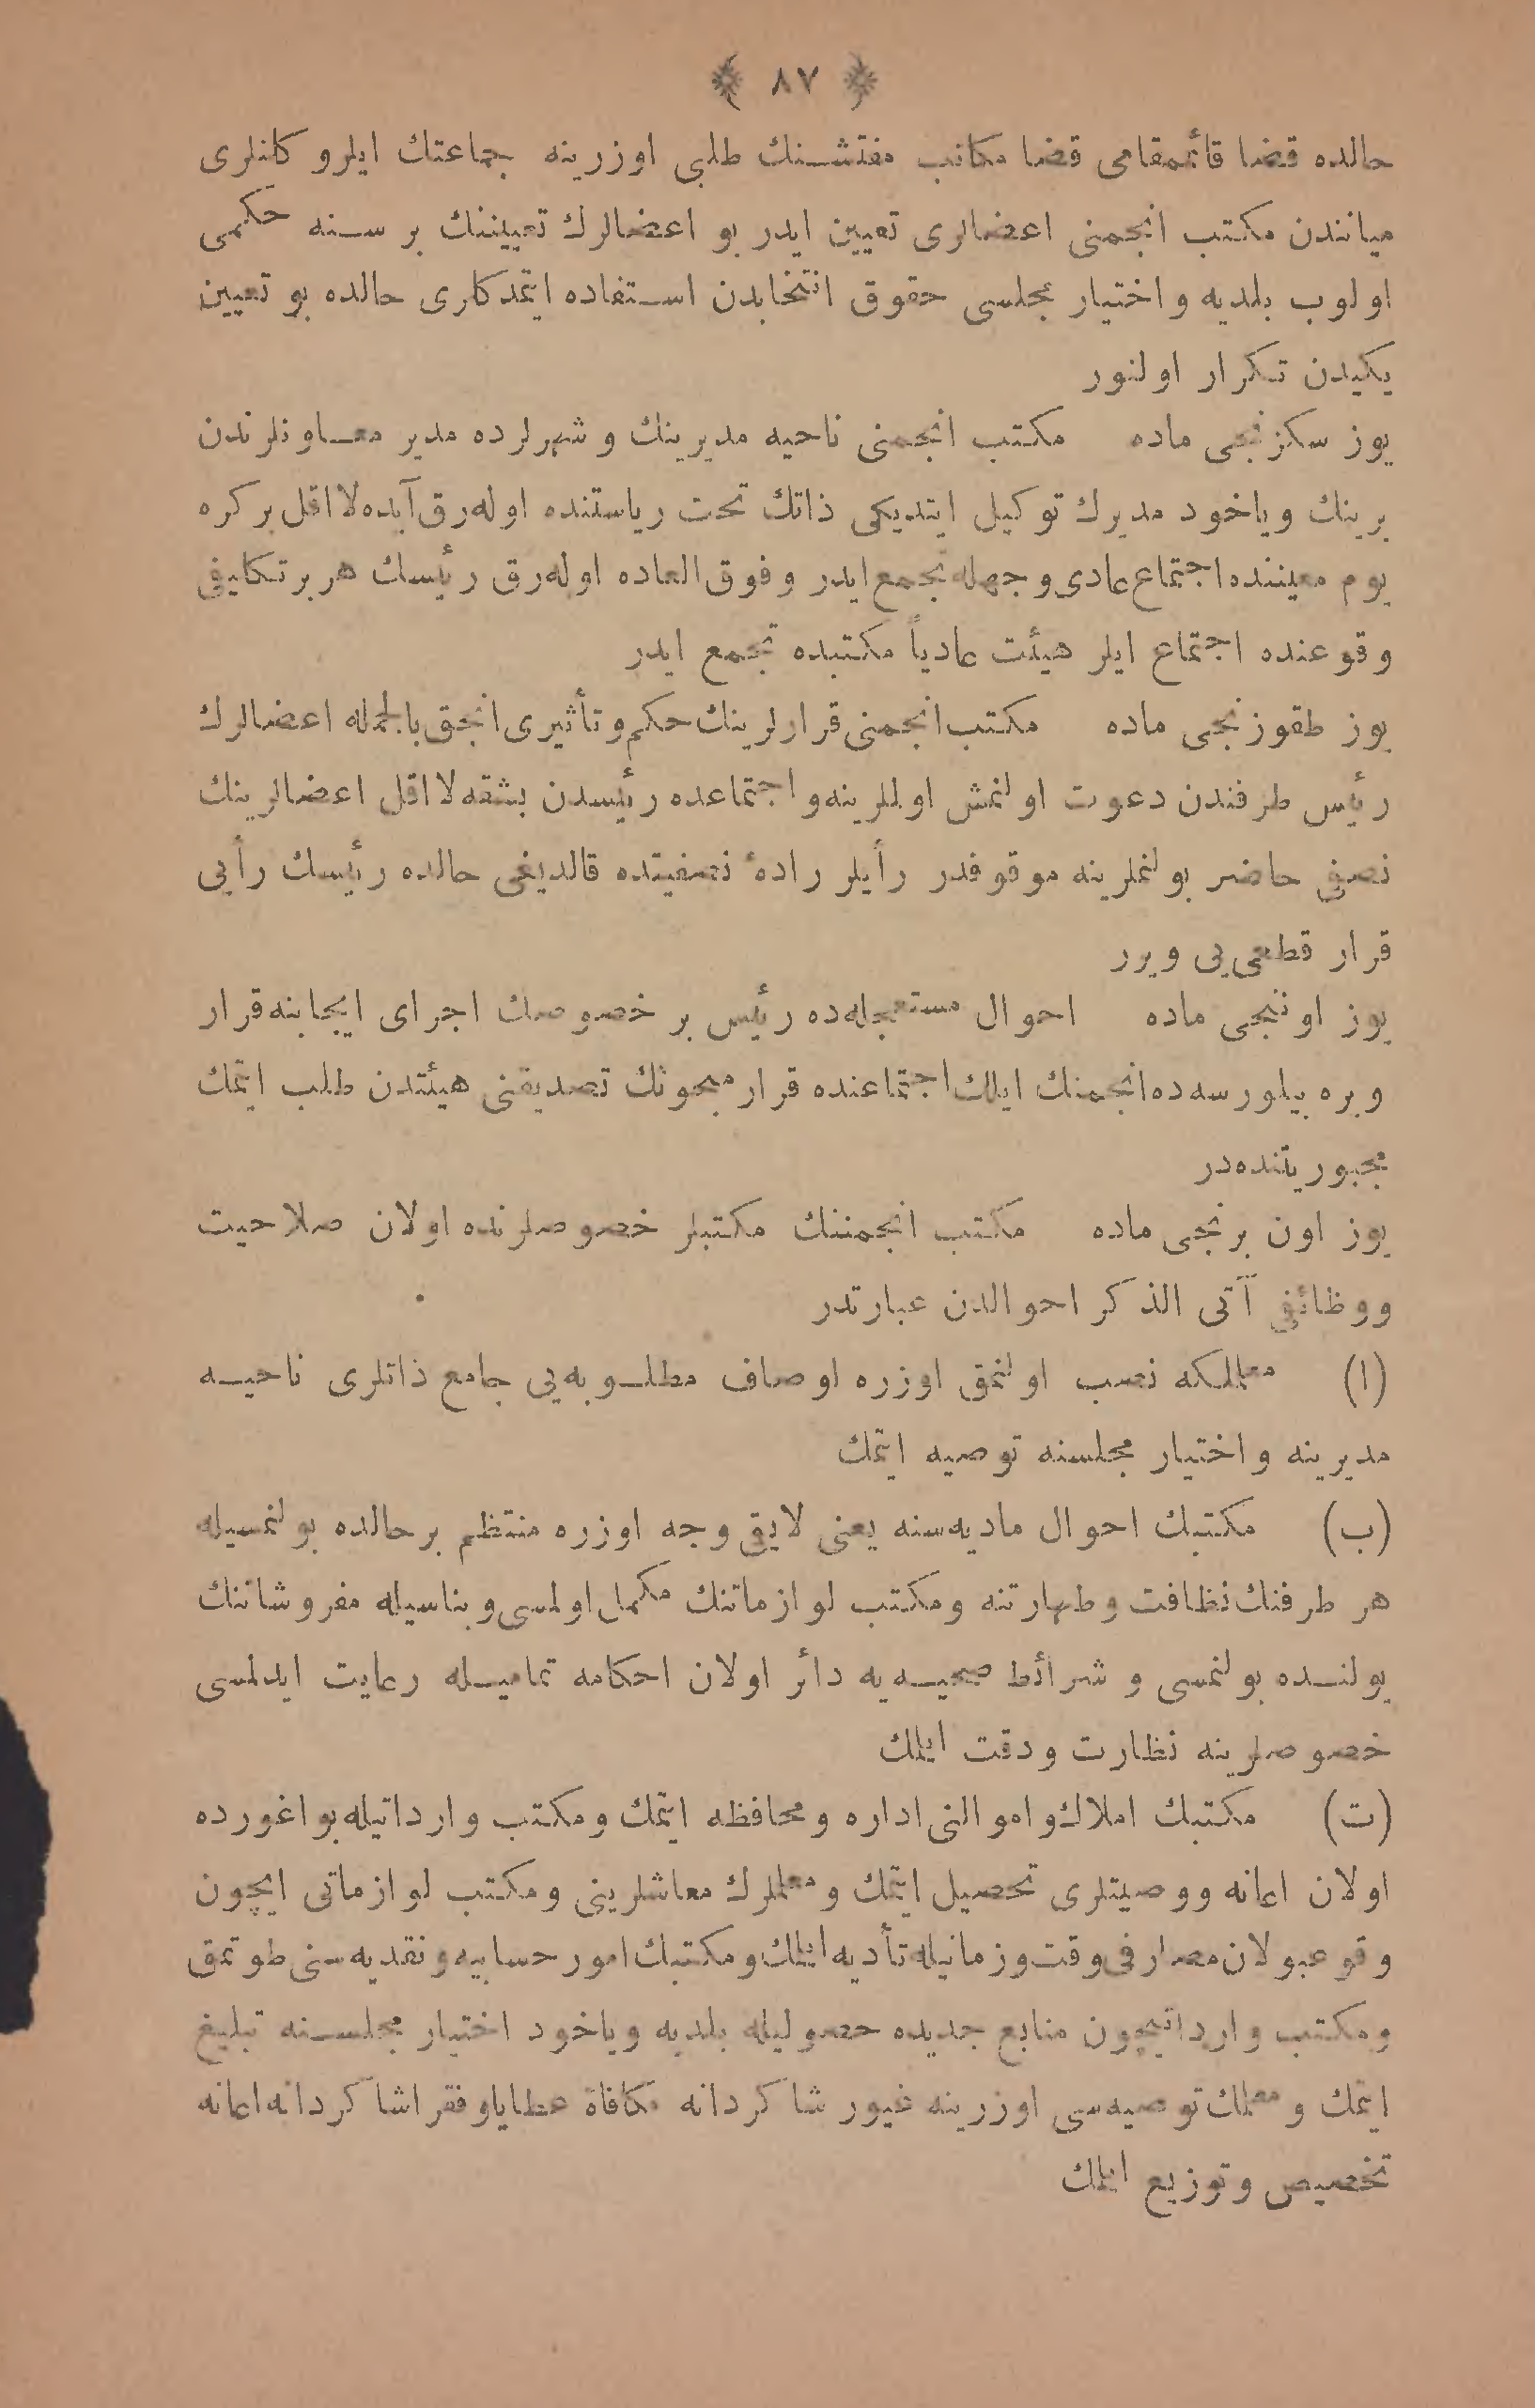 ﴿ ٨٧ ﴾
حالده قضا قائمقامى قضا مكاتب مفتشنك طلبى اوزرينه جماعتك ايلرو كانلرى
مياندن مكتب انجمنى اعضالرى تعيين ايدر بو اعضالرك تعييننك بر سنه حكمى
اولوب بلديه و اختيار مجلسى حقوق انتخابدن استفاده ايتمدكلرى حالده بو تعيين
يكيدن تكرار اولنور
يوز سكزنجى ماده مكتب انجمنى ناحيه مديرينك و شهرلرده مدير معاونلرندن
برينك وياخود مديرك توكيل ايتديكى ذاتك تحت رياستنده اوله‌رق آيده لااقل بر كره
يوم معيننده اجتماع عادى وجهله تجمع ايدر و فوق العاده اوله‌رق رئيسك هر بر تكليفى
وقوعنده اجتماع ايلر هيئت عادياً مكتبده تجمع ايدر
يوز طقوزنجى ماده مكتب انجمنى قرارلرينك حكم و تأثيرى انجق بالجمله اعضالرك
رئيس طرفندن دعوت اولنمش اوللرينه و اجتماعده رئيسدن بشقه لااقل اعضالرينك
نصفى حاضر بولنملرينه موقوفدر رأيلر راده‌ٔ نصفيتده قالديغى حالده رئيسك رأيى
قرار قطعى‌يى ويرر
يوز اوننجى ماده احوال مستعجله‌ده رئيس بر خصوصك اجراى ايجابنه قرار
ويره بيلورسه‌ده انجمنك ايلك اجتماعنده قرار مبحوثك تصديقنى هيئتدن طلب ايتمك
مجبوريتنده‌در
يوز اون برنجى ماده مكتب انجمننك مكتبلر خصوصلرنده اولان صلاحيت
و وظائفى آتى الذكر احوالدن عبارتدر
(ا) معلملكه نصب اولنمق اوزره اوصاف مطلوبه‌يى جامع ذاتلرى ناحيه
مديرينه و اختيار مجلسنه توصيه ايتمك
(ب) مكتبك احوال ماديه‌سنه يعنى لايق وجه اوزره منتظم بر حالده بولنمسيله
هر طرفنك نظافت و طهارتنه و مكتب لوازماتنك مكمل اولمسى و بناسيله مفروشاتنك
يولنده بولنمسى و شرائط صحيه‌يه دائر اولان احكامه تماميله رعايت ايدلمسى
خصوصلرينه نظارت و دقت ايلمك
(ت) مكتبك املاك و اموالنى اداره و محافظه ايتمك و مكتب وارداتيله بو اغورده
اولان اعانه و وصيتلرى تحصيل ايتمك و معلملرك معاشلرينى و مكتب لوازماتى ايچون
وقوعبولان مصارفى وقت و زمانيله تأديه ايلمك و مكتبك امور حسابيه و نقديه‌سنى طوتمق
و مكتب وارداتيچون منابع جديده حصوليله بلديه وياخود اختيار مجلسنه تبليغ
ايتمك و معلمك توصيه‌سى اوزرينه غيور شاكردانه مكافاة عطايا و فقرا شاكردانه اعانه
تخصيص و توزيع ايلمك